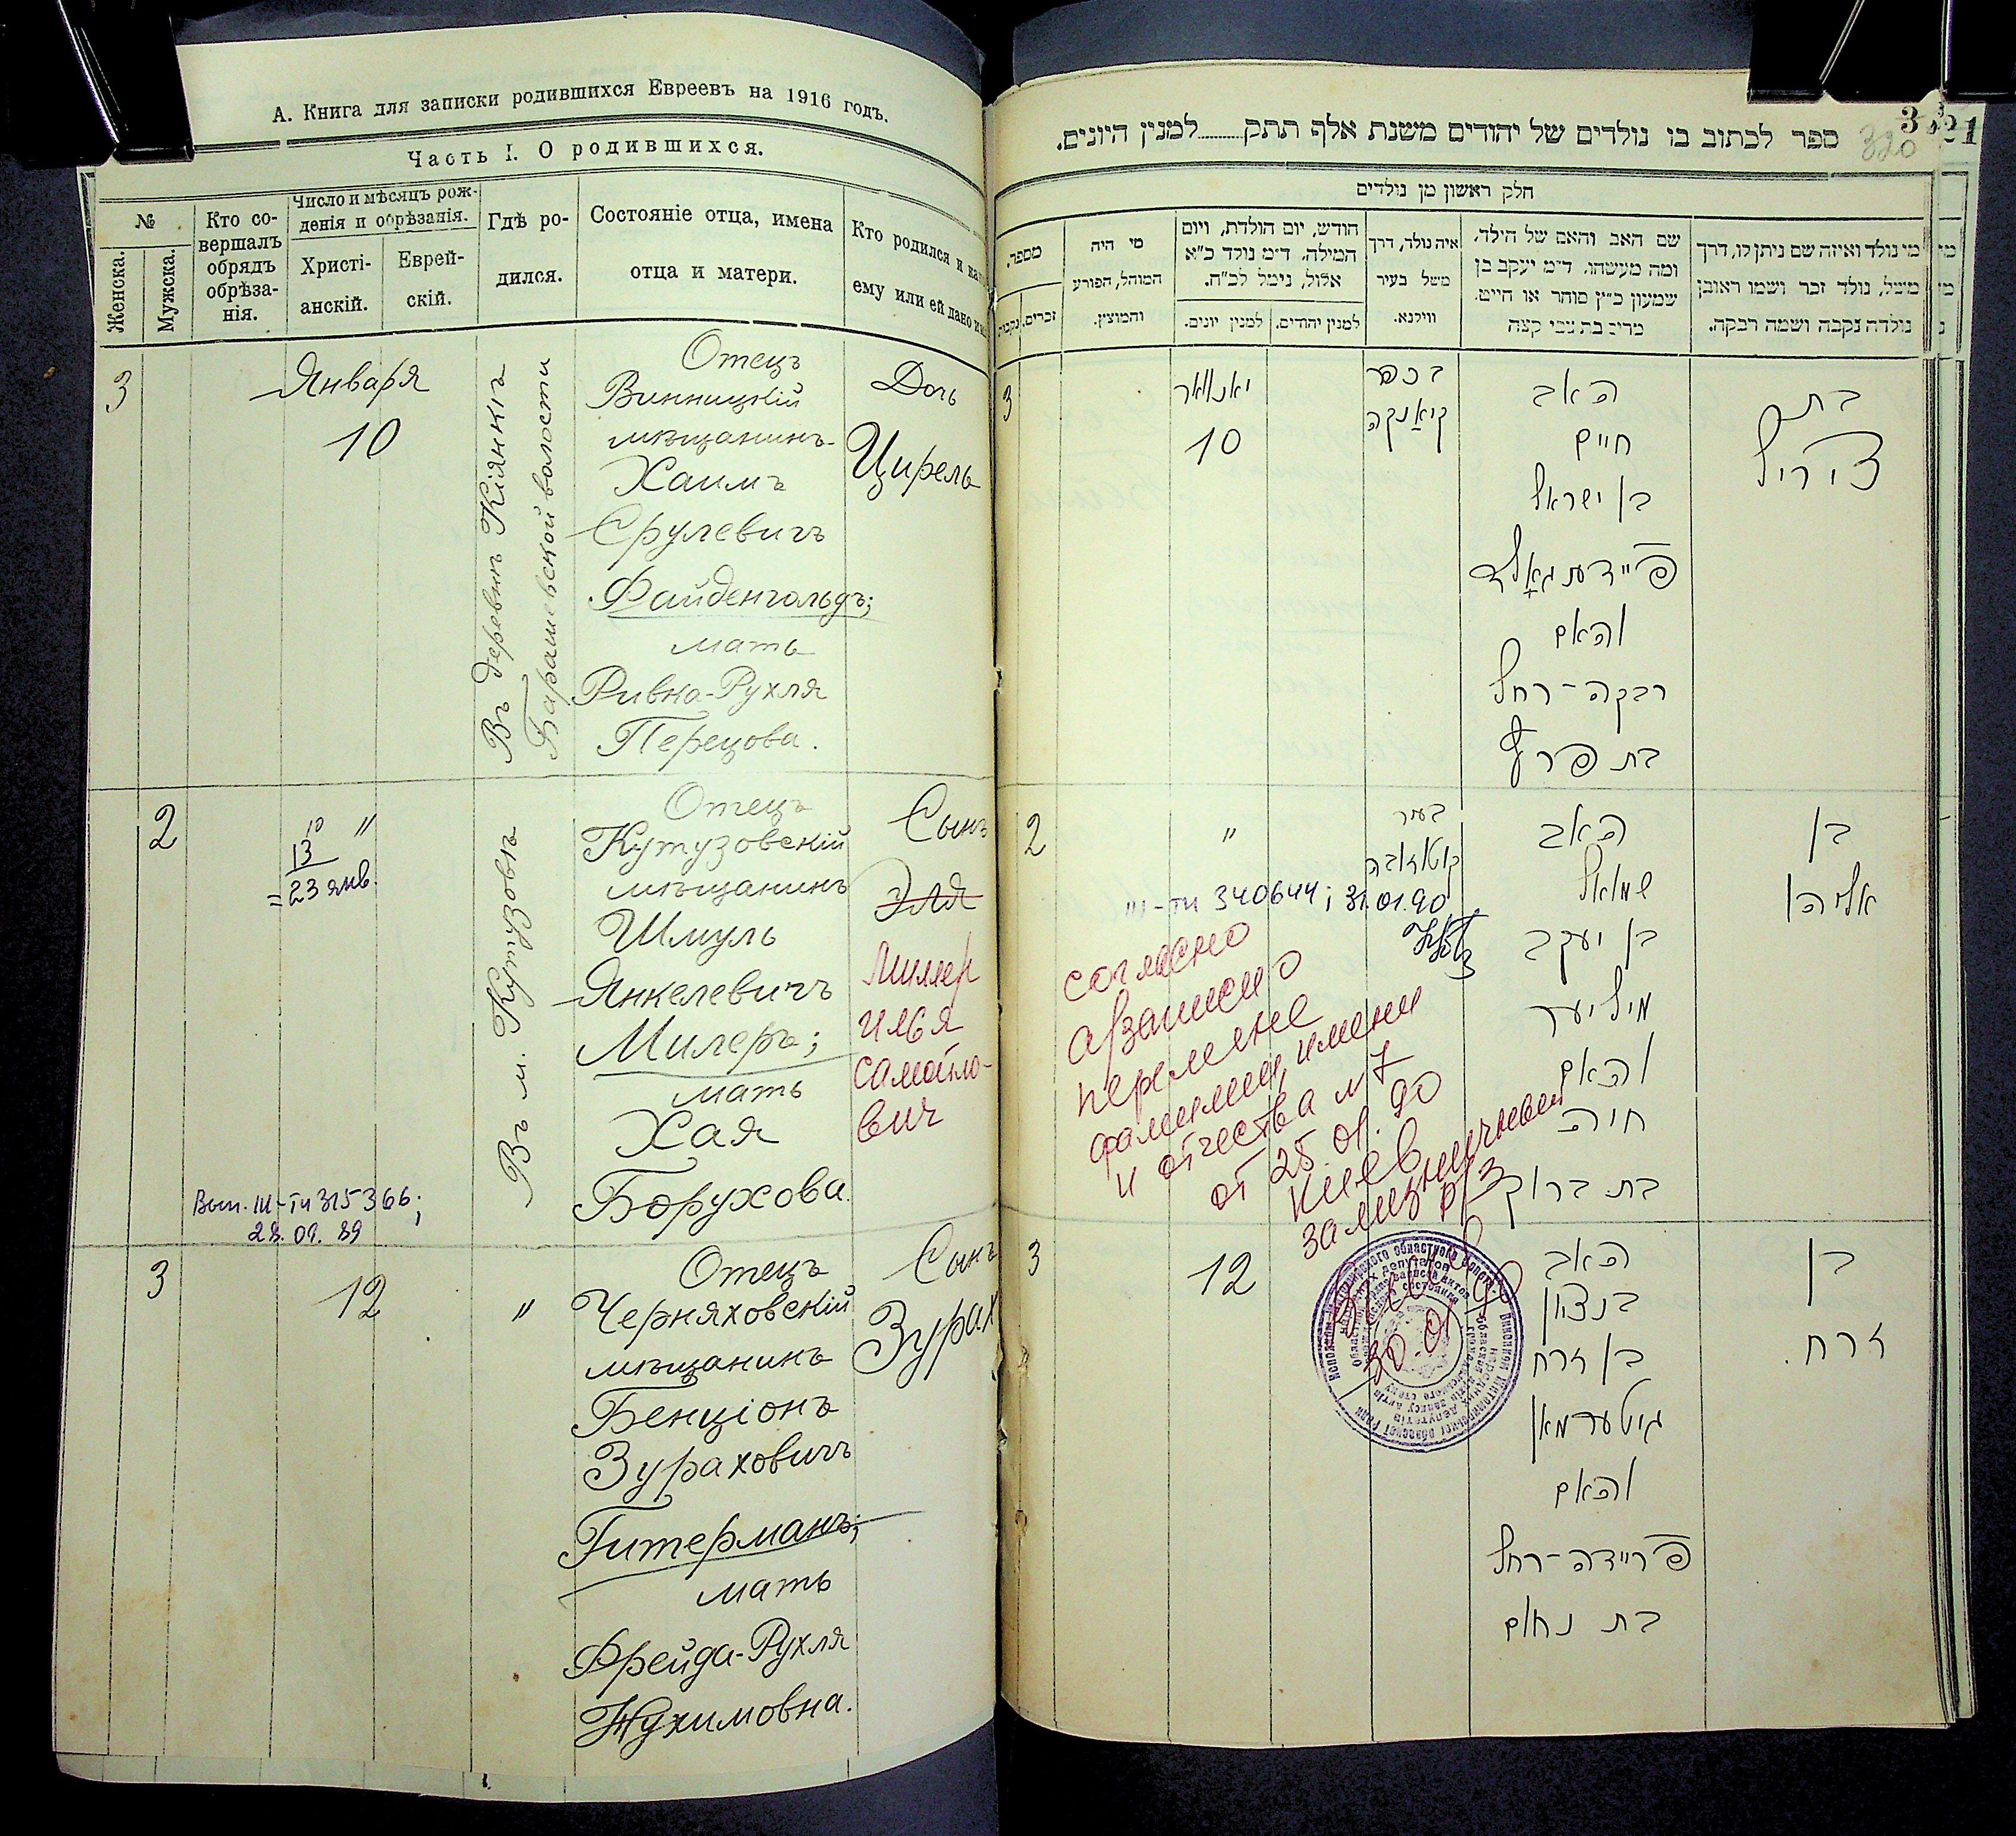 А. Книга для записки родившихся Евреевъ на 1916 годъ.
Часть I. О родившихся.
№
Женска.
Мужска.
Кто со-
вершалъ
обрядъ
обрѣза-
нія.
Число и мѣсяцъ рож-
денія и обрѣзанія.
Христі-
анскій.
Еврей-
скій.
Гдѣ ро-
дился.
Состояніе отца, имена
отца и матери.
Кто родился и как
ему или ей дано и
3
Января
10
Въ деревнѣ Кіянкѣ
Барашевской волости
Отецъ
Винницкій
мѣщанинъ
Хаимъ
Срулевичъ
Файденгольдъ;
мать
Ривка-Рухля
Перецова.
Дочь
Цирель
2
10 "
13
= 23 янв.
Вып. III-ТИ 315366;
28.09.89
Въ м. Кутузовѣ
Отецъ
Кутузовскій
мѣщанинъ
Шмуль
Янкелевичъ
Милеръ;
мать
Хая
Борухова.
Сынъ
Эля
Миллер
Илья
Самойло-
вич
3
12
"
Отецъ
Черняховскій
мѣщанинъ
Бенціонъ
Зураховичъ
Гитерманъ;
мать
Фрейда-Рухля
Нухимовна.
Сынъ
Зурах
3
320
21
ספר לכתוב בו נולדים של יהודים משנת אלף תתק........למנין היונים.
חלק ראשון מן נולדים
מי נולד ואיזה שם ניתן לו, דרך
משל, נולד זכר ושמו ראובן
נולדה נקבה ושמה רבקה.
שם האב והאם של הילד,
ומה מעשהו. ד״מ יעקב בן
שמעון כ״ץ סוחר או חייט.
מרים בת צבי קצה
איה נולד, דרך
משל בעיר
ווילנא.
חודש, יום הולדת, ויום
המילה, ד״מ נולד כ״א
אלול, נימל לכ״ה.
למנין יהודים.
למנין יונים.
מי היה
המוהל, הפורע
והמוצץ.
מספר.
זכרים.
נקבות
בת
ציריל
האב
חיים
בן ישראל
פיידענגאלד
והאם
רבקה-רחל
בת פרץ
בכפר
קיאנקה
יאנואר
10
3
בן
אליהו
האב
שמואל
בן יעקב
מיליער
והאם
חיה
בת ברוך
בעיר
קוטאזובה
"
2
III-ТИ 340644; 31.01.90
согласно
а/записи о
перемене
фамилии, имени
и отчества № 7
от 25.01.90
Киев
зализничным
р/з
30.01.90
בן
זרח.
האב
בנציון
בן זרח
גיטערמאן
והאם
פריידה-רחל
בת נחום
12
3